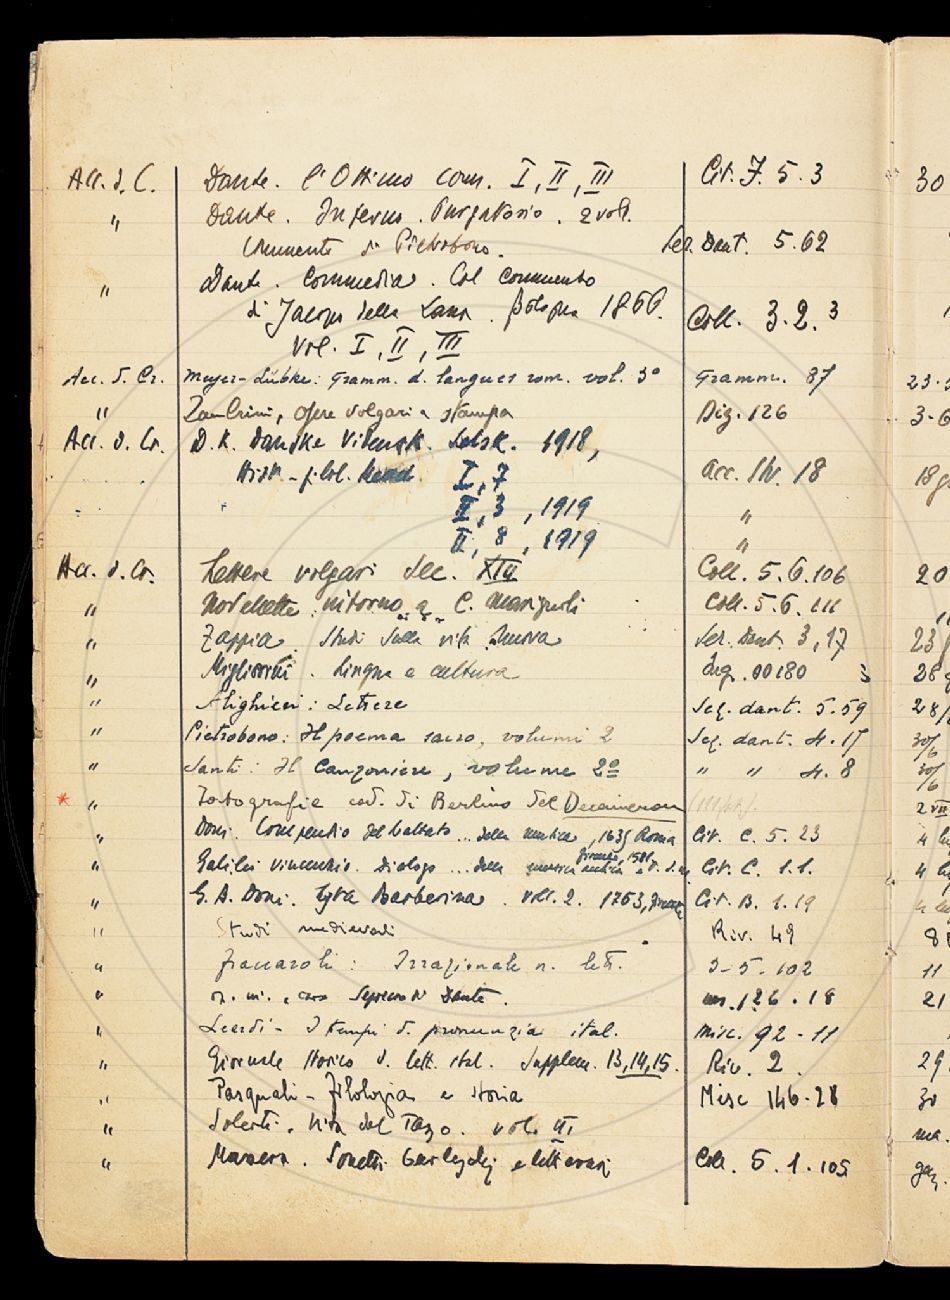 Acc. d. C. Dante. l'Ottimo com. I, II, III Cit. F. 5. 3 30
" Dante. Inferno. Purgatorio. 2 voll.
Commento di Pietrobono. Sez. Dant. 5.62
" Dante. Commedia. Col commento
di Jacopo della Lana. Bologna 1866. Coll. 3.2.3
Vol. I, II, III
Acc. d. Cr. Meyer-Lübke: Gramm. d. langues rom. vol. 3° Gramm. 87 23
" Zambrini, opere volgari a stampa Diz. 126 3-6
Acc. d. Cr. D. K. Danske Vidensk. Selsk. 1918,
Hist-filol. Medd. I, 7 Acc. 18 18
II, 3, 1919 "
II, 8, 1919 "
Acc. d. Cr. Lettere volgari sec. XIII Coll. 5.6.106 20
" Novellette intorno a C. Marignolli Coll. 5.6.111
" Zappia. Studi sulla vita Nuova Sez. Dant. 3,17 23
" Migliorini. Lingua e cultura Ling. 00180 3 28
" Alighieri: Lettere Sez. dant. 5.59 28/
" Pietrobono: Il poema sacro, volumi 2 Sez. dant. 4.17 30/6
" Santi: Il Canzoniere, volume 2º " " 4.8 30/6
* " Fotografie cod. di Berlino del Decameron 2 VII
" Doni. Compendio del trattato ... della musica, 1635 Roma Cit. C. 5. 23 4
Firenze, 1581
" Galilei Vincenzio. Dialogo ... della musica antica Cit. C. 1.1. 4
" G. A. Doni. Lyra Barberina. voll. 2. 1763, Firenze Cit. B. 1.19 4
" Studi medievali Riv. 49 8
" Fraccaroli: Irrazionale n. lett. I-5.102 11
" Dante. 126.18 21
" Leardi - I tempi d. pronunzia ital. Misc. 92-11
" Giornale storico d. lett. ital. Supplem. 13,14,15. Riv. 2. 29
" Pasquali - Filologia e storia Misc 146-28 30
" Solerti. Vita del Tasso. vol. III ma.
" Sonetti burleschi e letterari Coll. 5.1.105